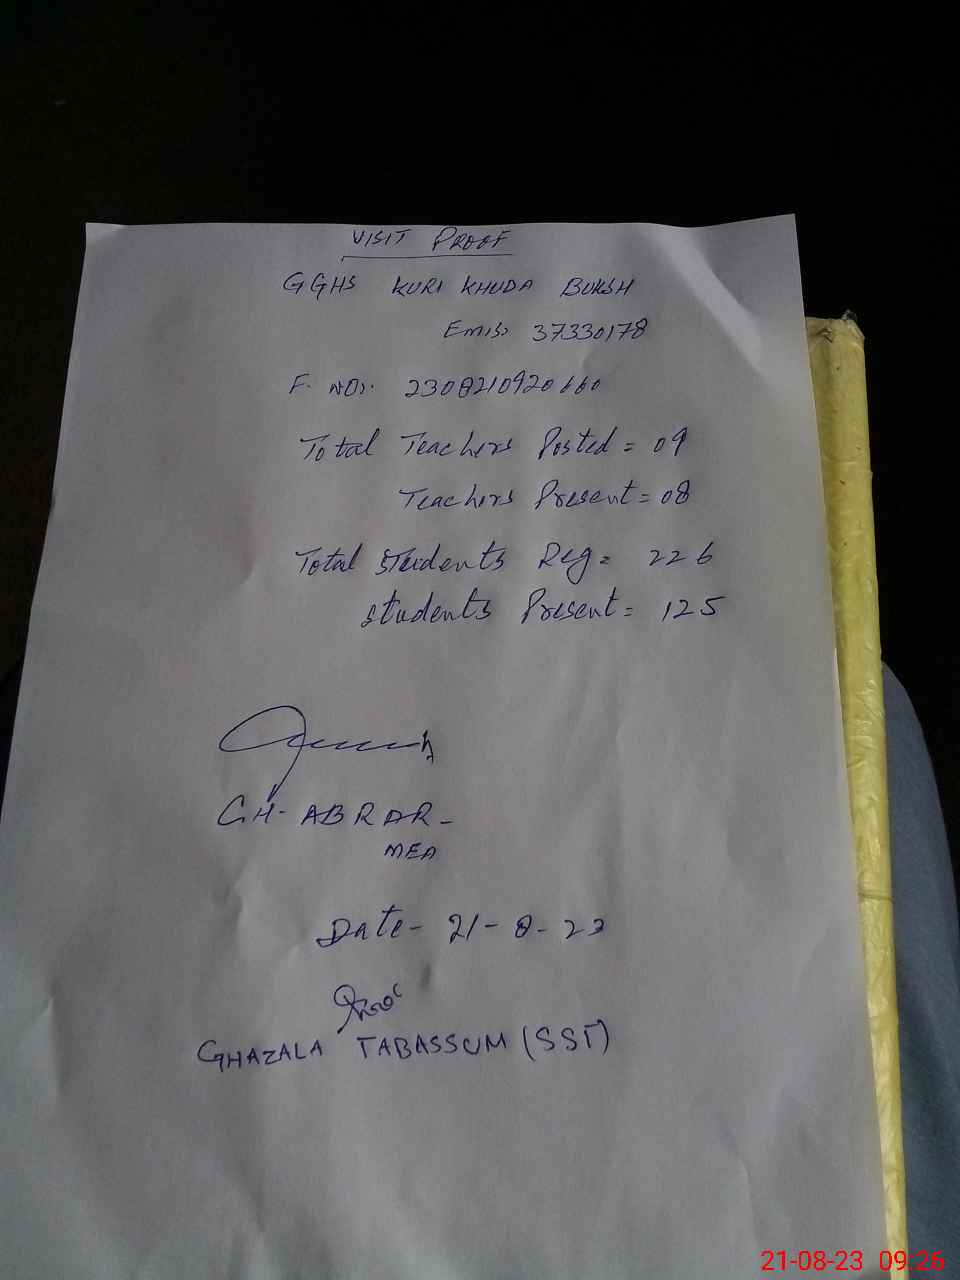 VISIT PROOF
GGHS KURI KHUDA BUKSH
Emis: 37330178
F. NO:. 2308210920660
Total Teachers Posted = 09
Teachers Present = 08
Total Students Reg = 226
Students Present = 125
CH- ABRAR-
MEA
Date- 21-8-23
GHAZALA TABASSUM (SST)
21-08-23 09:26